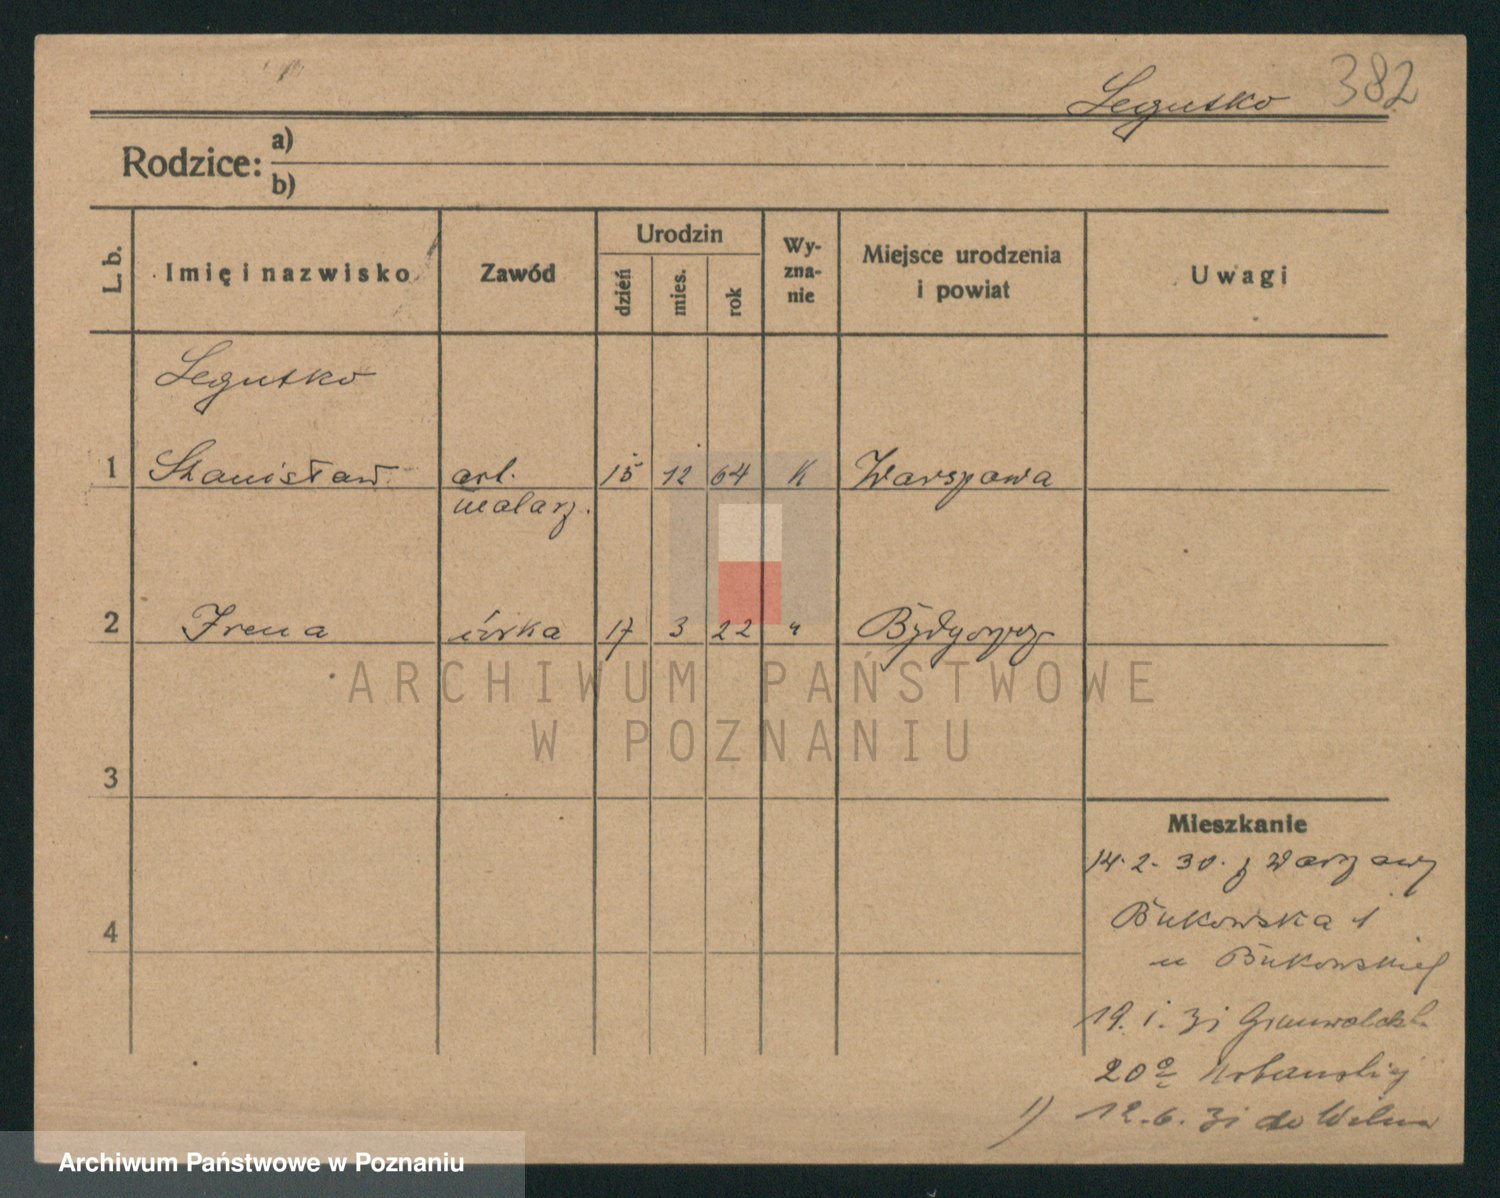 Legutko 382
Rodzice: a)
b)
L. b.
Imię i nazwisko
Zawód
Urodzin
dzień
mies.
rok
Wy-
zna-
nie
Miejsce urodzenia
i powiat
Uwagi
Legutko
1 Stanisław art. 15 12 64 K Warszawa
malarz.
2 Irena córka 17 3 22 " Bydgoszcz
ARCHIWUM PAŃSTWOWE
W POZNANIU
3
4
Mieszkanie
14. 2. 30. z Warszawy
Bukowska 1
u Bukowskiej
19. 1. 31 Grunwaldzk.
20a Urbańskiej
1) 12. 6. 31 do Wilna
Archiwum Państwowe w Poznaniu